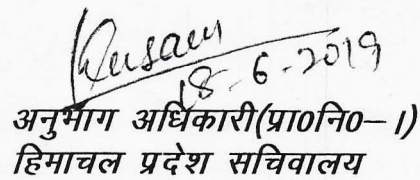 Kusam
18-6-2019
अनुभाग अधिकारी(प्रा0नि0–।)
हिमाचल प्रदेश सचिवालय